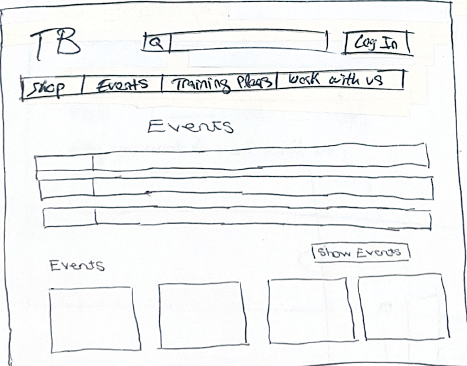 TB
Q
Log In
Shop Events Training Plans Work with us
Events
Show Events
Events